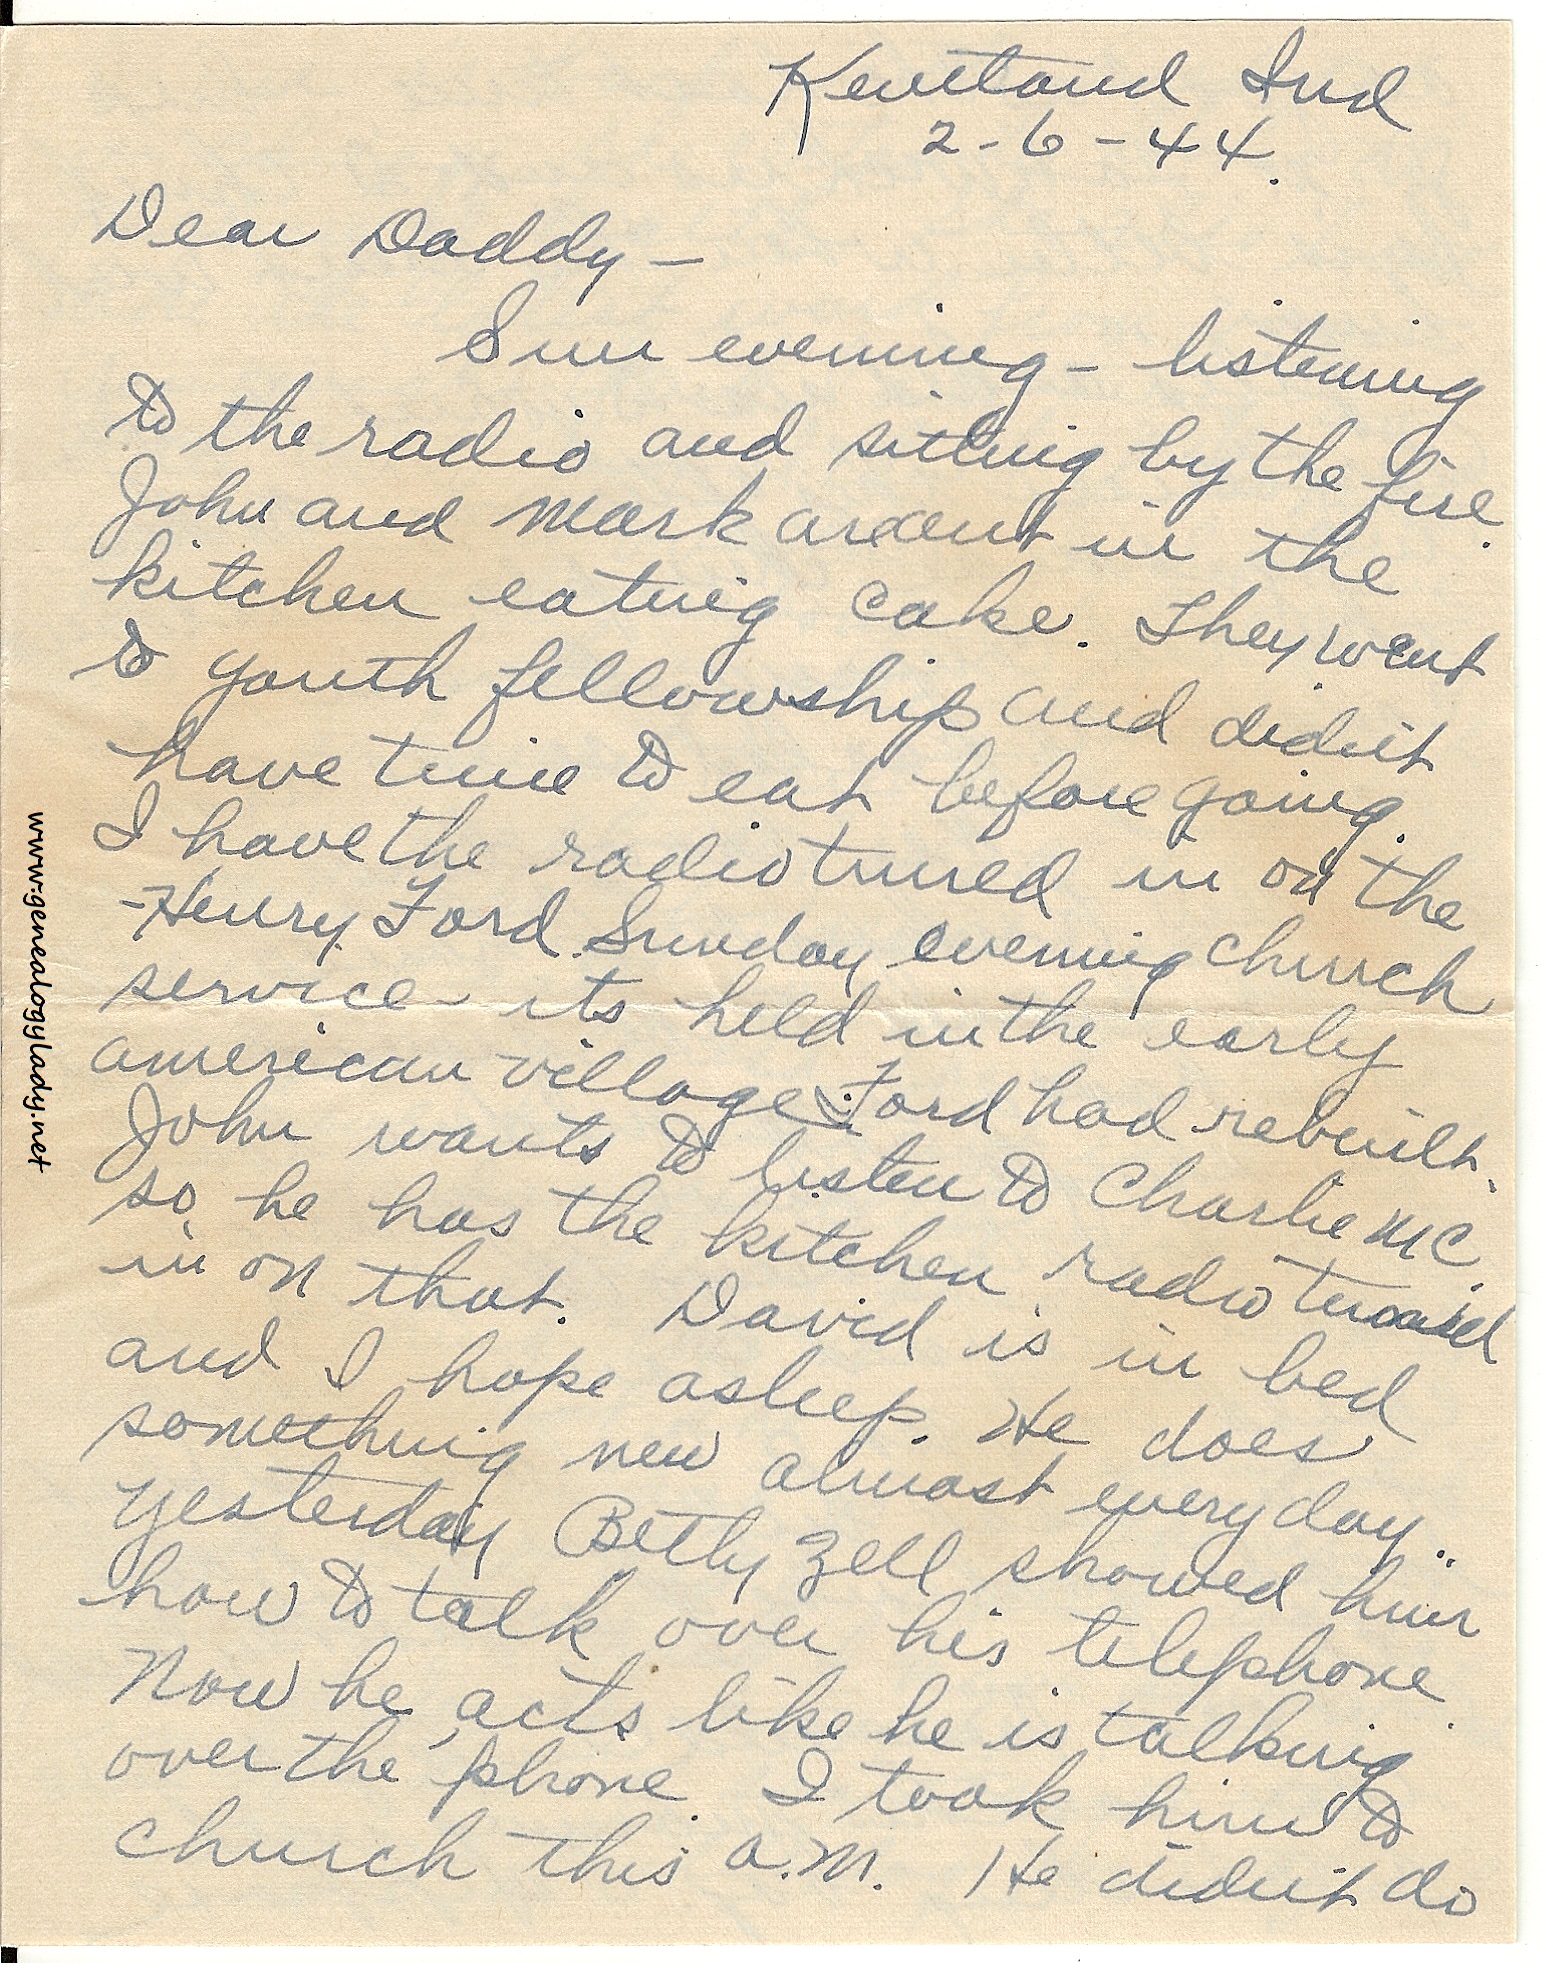 Kentland Ind
2-6-44.
Dear Daddy —
Sun evening - listening
to the radio and sitting by the fire.
John and Mark are out in the
kitchen eating cake. They went
to youth fellowship and didn't
have time to eat before going.
I have the radio tuned in on the
Henry Ford Sunday evening church
service - its held in the early
american village Ford had rebuilt.
John wants to listen to Charlie Mc.
so he has the kitchen radio tuned
in on that. David is in bed
and I hope asleep. He does
something new almost every day..
yesterday Betty Zell showed him
how to talk over his telephone.
Now he acts like he is talking
over the phone. I took him to
church this a.m. He didn't do
www.genealogylady.net